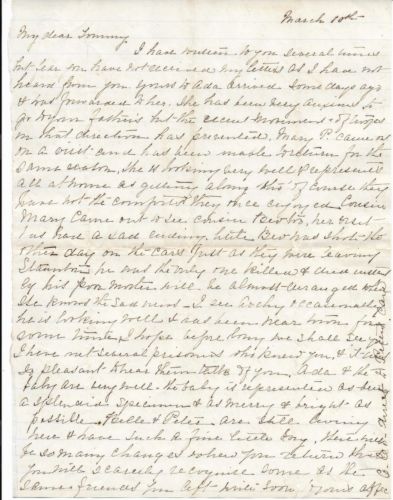 March 10th
My dear Tommy
I have written to you several times
but fear you have not received my letters as I have not
heard from you. Yours to Ada arrived some days ago
& was forwarded to her. She has been very anxious to
go to your father's but the recent movement of troops
in that direction has prevented. Mary P. came
on a visit and has been unable to return for the
same reason. She is looking very well & represents
all at home as getting along tho' of course they
have not the comforts they once enjoyed. Cousin
Mary came out to see Cousin her visit
has had a sad ending. little was shot the
other day on the cars just as they were leaving
Staunton he was the only one killed & died
his poor mother will be almost deranged when
she knows the sad news. I see Archy occasionally
he is looking well & has been near town for
some time. I hope before long we shall see you
I have met several prisoners who knew you, & it is
so pleasant to hear them talk of you. Ada & the
baby are very well. the baby is represented as being
a splendid specimen & as merry & bright as
possible. Belle & Pete are still living
here & have such a fine little boy. There will
be so many changes when you return that
you will scarcely recognise some as the
same friends you left. Write soon. Yours